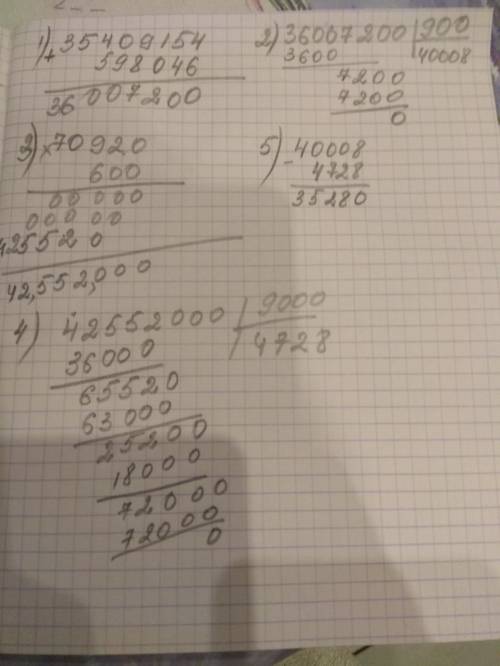 1) + 35409154
598046
36007200
2) 36007200 | 900
3600 40008
7200
7200
0
3) × 70920
600
00000
00000
425520
42,552,000
5) - 40008
4728
35280
4) 42552000 | 9000
36000 4728
65520
63000
25200
18000
72000
72000
0